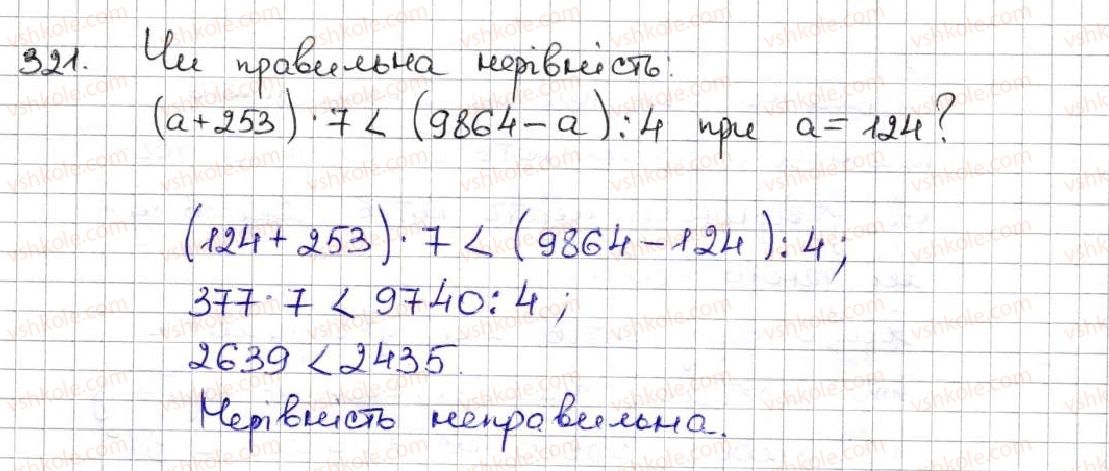 321. Чи правильна нерівність:
(a+253)·7 < (9864-a):4 при a=124?
(124+253)·7 < (9864-124):4;
377·7 < 9740:4;
2639 < 2435.
Нерівність неправильна.